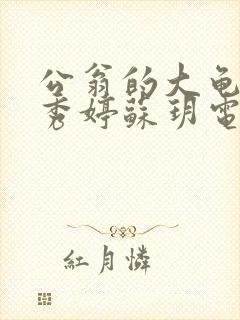 公翁的大龟
秀婷蘇玥電
紅月憐